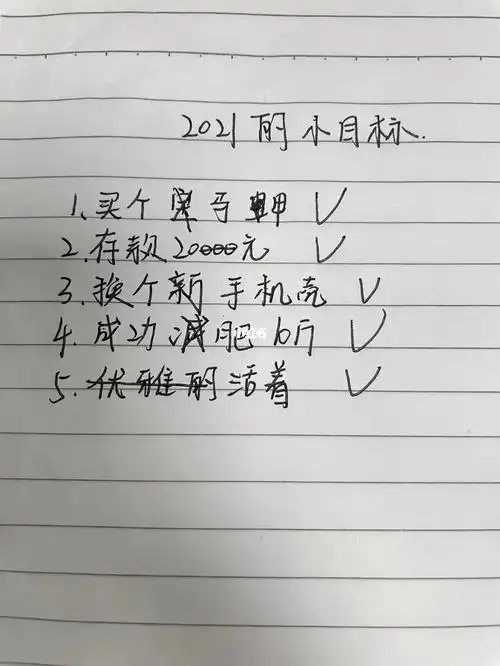 2021的小目标.
1、买个
2.存款20000元
3.换个新手机壳
4.成功减肥10斤
小红书
5.优雅的活着